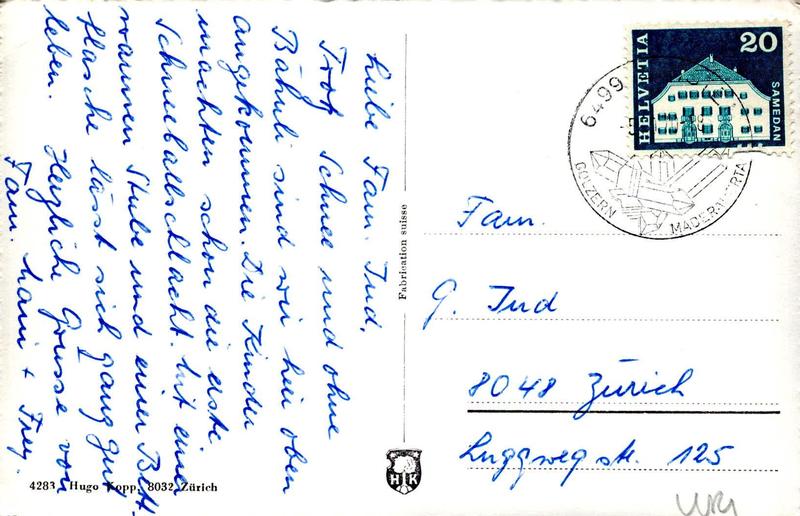 Liebe Fam. Jud,
Trotz Schnee und ohne
Bähnli sind wir hier oben
angekommen. Die Kinder
machten schon die erste
Schneeballschlacht. Mit einer
warmen Stube und einer Bett-
flasche lässt sich ganz gut
leben. Herzliche Grüsse von
Fam.
4283 Hugo Kopp, 8032 Zürich
Fabrication suisse
HK
HELVETIA
20
SAMEDAN
6499
GOLZERN
MADERANERTAL
Fam.
G. Jud
8048 Zürich
Luggwegstr. 125
URI